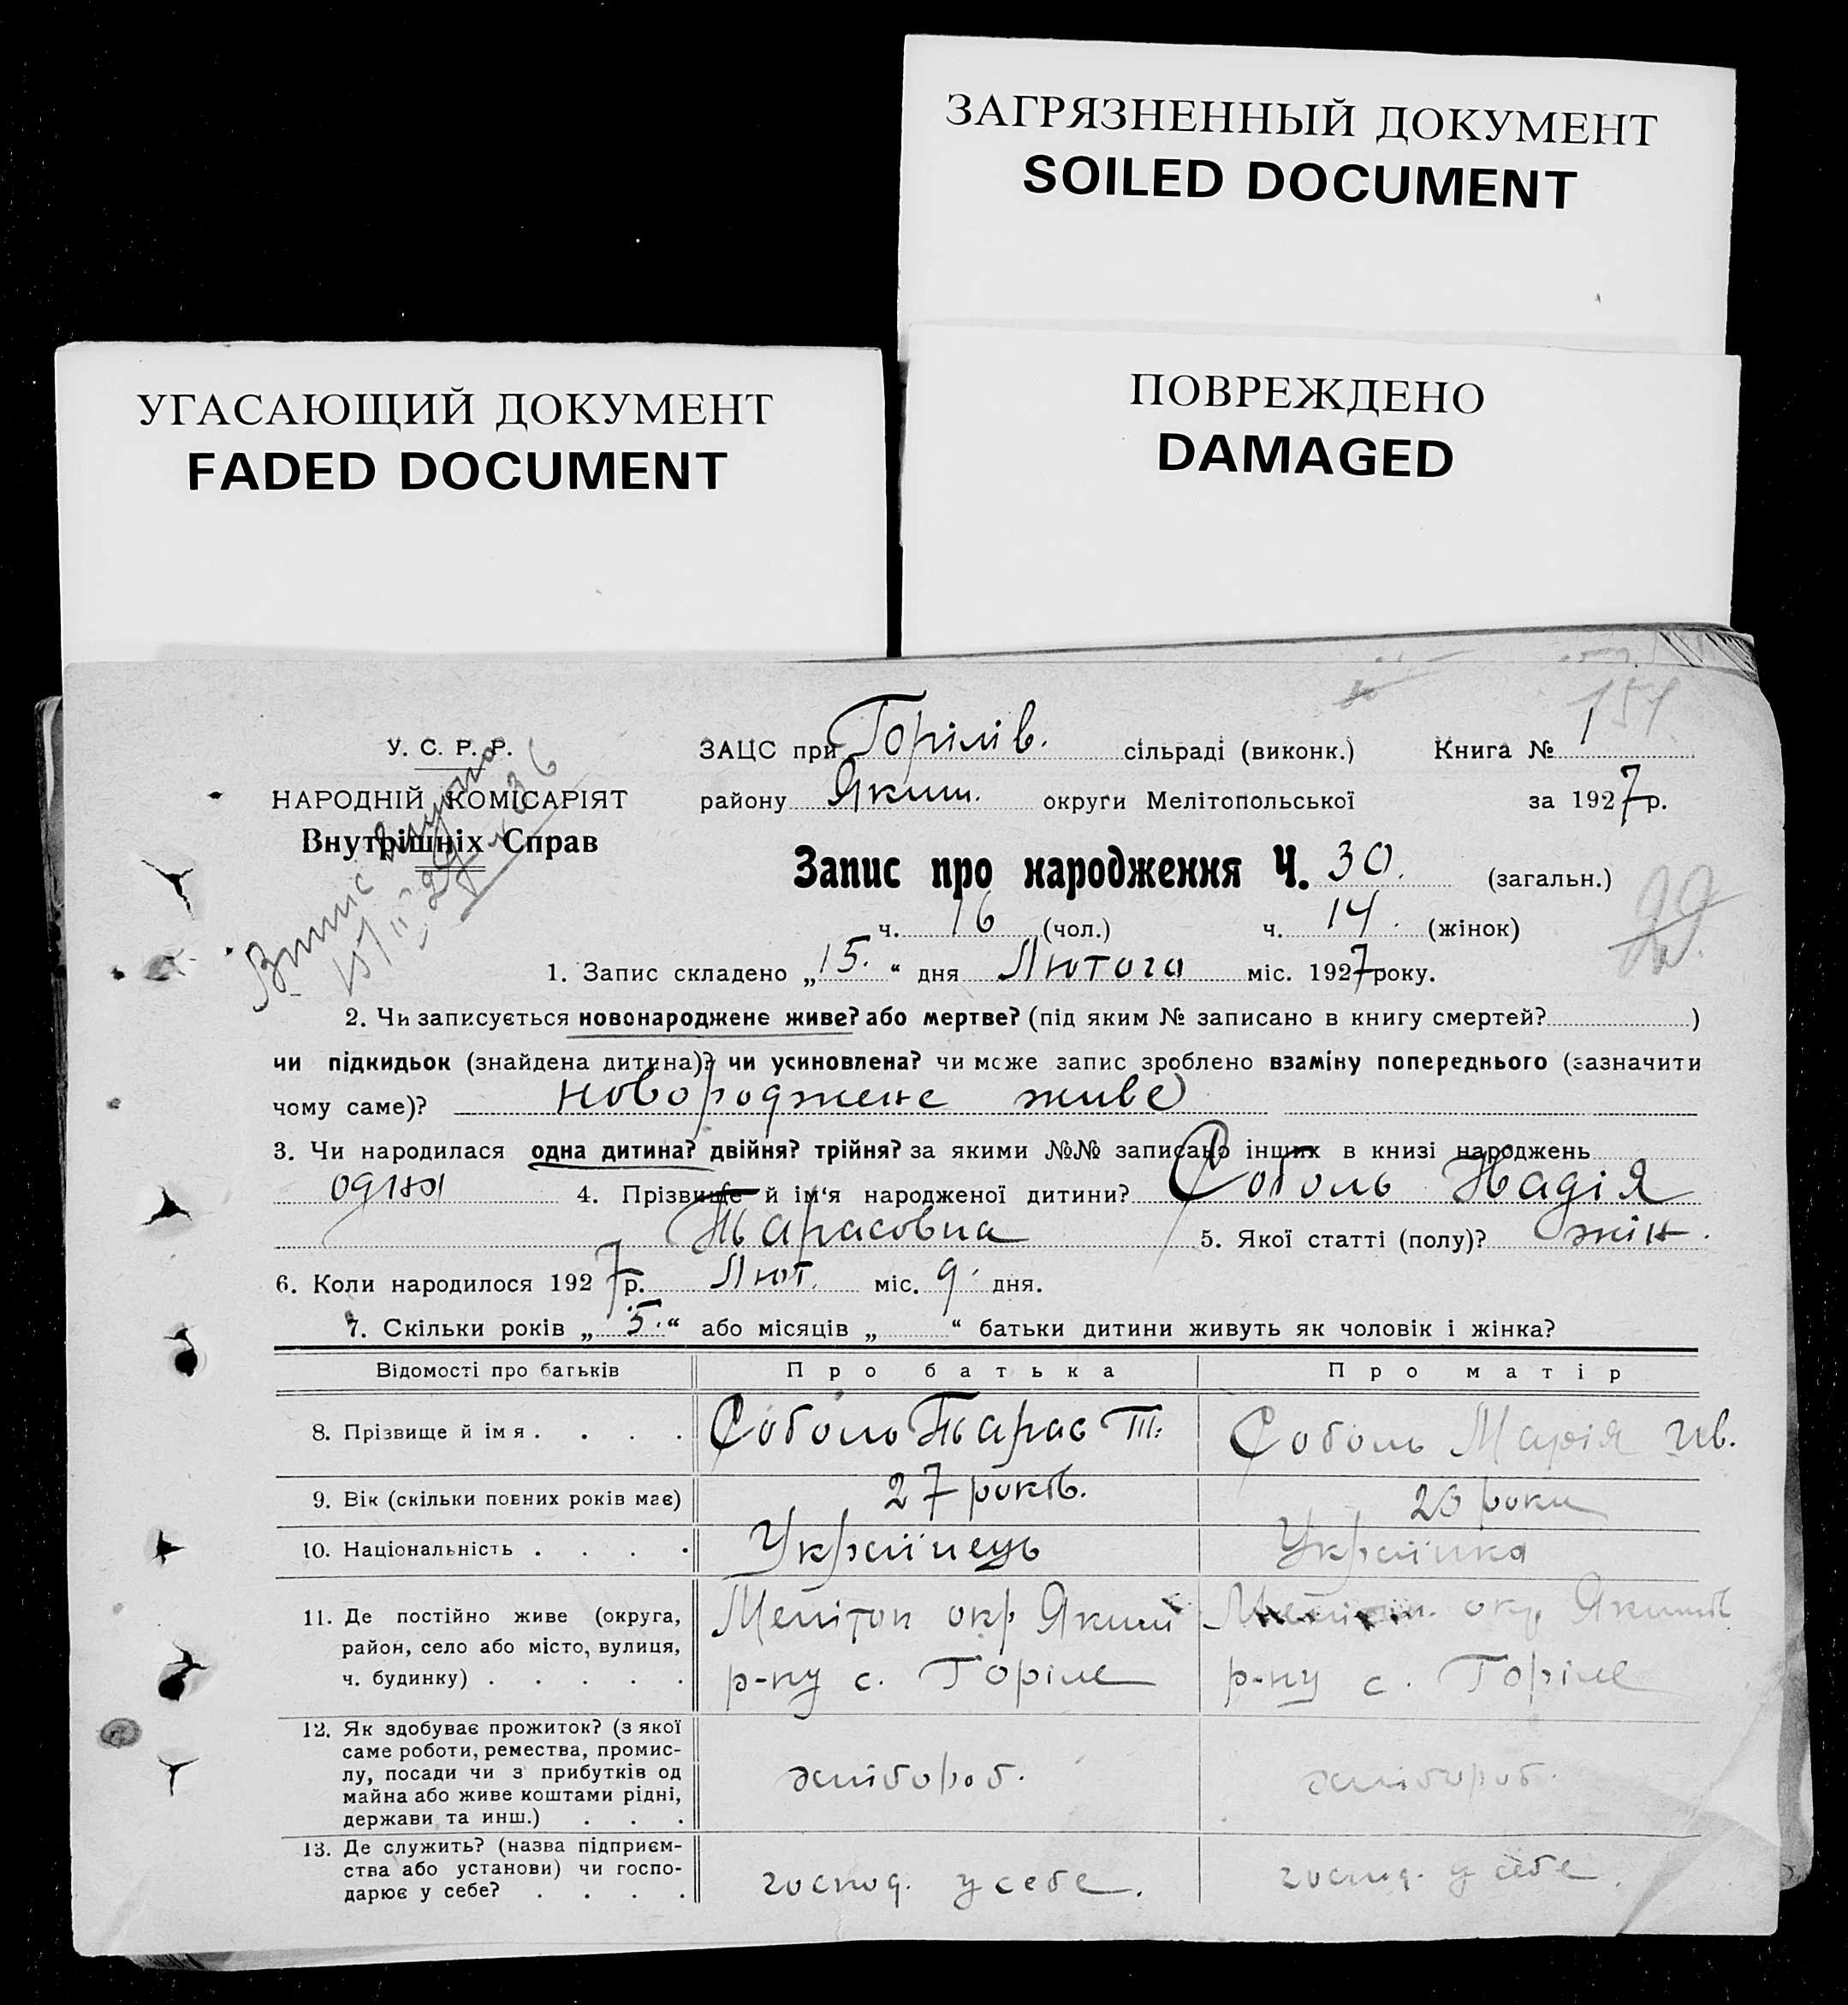 ЗАГРЯЗНЕННЫЙ ДОКУМЕНТ
SOILED DOCUMENT
УГАСАЮЩИЙ ДОКУМЕНТ
FADED DOCUMENT
ПОВРЕЖДЕНО
DAMAGED
151
У. С. Р. Р.
НАРОДНІЙ КОМІСАРІЯТ
Внутрішніх Справ
ЗАЦС при Горілів. сільраді (виконк.) Книга № 1
району Яким. округи Мелітопольської за 1927 р.
Запис про народження Ч. 30. (загальн.)
29
ч. 16 (чол.) ч. 14. (жінок)
1. Запис складено „15.“ дня Лютого міс. 1927 року.
2. Чи записується новонароджене живе? або мертве? (під яким № записано в книгу смертей? )
чи підкидьок (знайдена дитина)? чи усиновлена? чи може запис зроблено взаміну попереднього (зазначити
чому саме)? новороджене живе
3. Чи народилася одна дитина? двійня? трійня? за якими №№ записано інших в книзі народжень
одна 4. Прізвище й ім‘я народженої дитини? Соболь Надія
Тарасовна 5. Якої статті (полу)? жін.
6. Коли народилося 1927 р. Лют. міс. 9 дня.
7. Скільки років „5.“ або місяців „ “ батьки дитини живуть як чоловік і жінка?
Відомості про батьків Про батька Про матір
8. Прізвище й імя . . . . Соболь Тарас Т. Соболь Марія Ів.
9. Вік (скільки повних років має) 27 років. 23 роки
10. Національність . . . . Українець Українка
11. Де постійно живе (округа,
район, село або місто, вулиця,
ч. будинку) . . . . .
Меліtоп окр Яким
р-ну с. Горіле
Меліtоп. окр. Яким
р-ну с. Горіле
12. Як здобуває прожиток? (з якої
саме роботи, ремества, промис-
лу, посади чи з прибутків од
майна або живе коштами рідні,
держави та инш.) . . .
хлібороб.
хлібороб.
13. Де служить? (назва підприєм-
ства або установи) чи госпо-
дарює у себе? . . . .
господ. у себе.
господ. у себе.